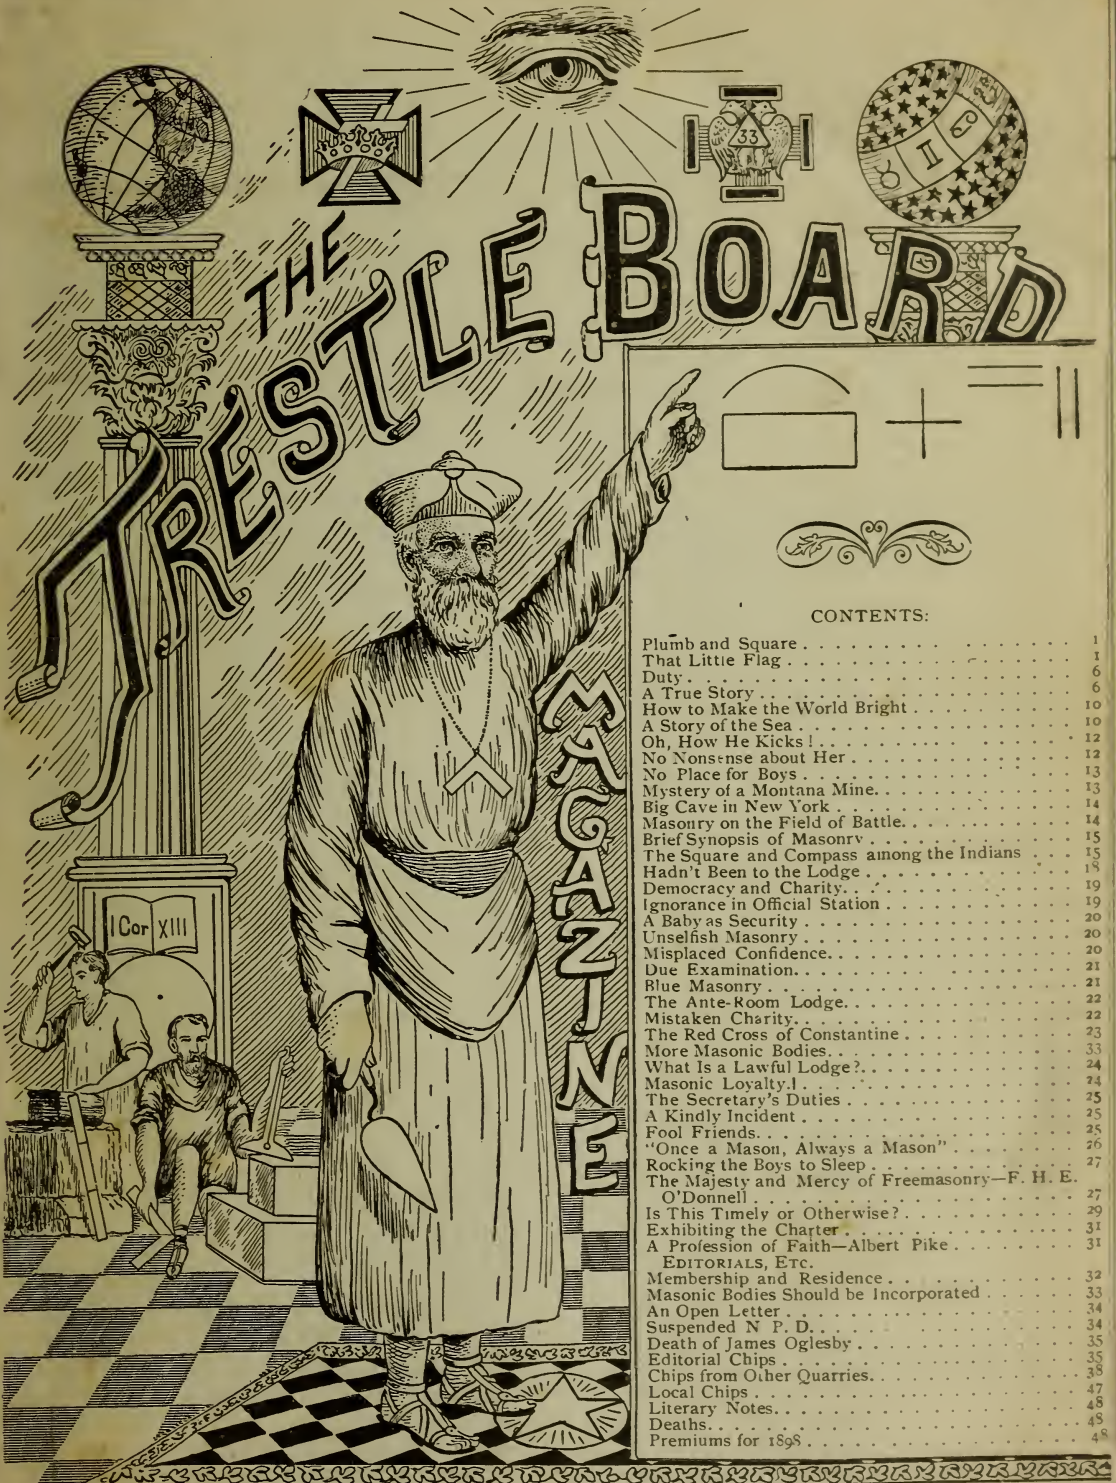 33
THE
TRESTLE BOARD
MAGAZINE
I Cor XIII
CONTENTS:
Plumb and Square . . . . . . . . . . 1
That Little Flag . . . . . . . . . . 1
Duty . . . . . . . . . . 6
A True Story . . . . . . . . . . 6
How to Make the World Bright . . . . . . . . . . 10
A Story of the Sea . . . . . . . . . . 10
Oh, How He Kicks ! . . . . . . . . . . 12
No Nonsense about Her . . . . . . . . . . 12
No Place for Boys . . . . . . . . . . 13
Mystery of a Montana Mine. . . . . . . . . . 13
Big Cave in New York . . . . . . . . . . 14
Masonry on the Field of Battle. . . . . . . . . . 14
Brief Synopsis of Masonry . . . . . . . . . . 15
The Square and Compass among the Indians . . . 15
Hadn't Been to the Lodge . . . . . . . . . . 18
Democracy and Charity. . . . . . . . . . 19
Ignorance in Official Station . . . . . . . . . . 19
A Baby as Security . . . . . . . . . . 20
Unselfish Masonry . . . . . . . . . . 20
Misplaced Confidence. . . . . . . . . . 20
Due Examination. . . . . . . . . . 21
Blue Masonry . . . . . . . . . . 21
The Ante-Room Lodge. . . . . . . . . . 22
Mistaken Charity. . . . . . . . . . 22
The Red Cross of Constantine . . . . . . . . . . 23
More Masonic Bodies. . . . . . . . . . 33
What Is a Lawful Lodge?. . . . . . . . . . 24
Masonic Loyalty. . . . . . . . . . 24
The Secretary's Duties . . . . . . . . . . 25
A Kindly Incident . . . . . . . . . . 25
Fool Friends. . . . . . . . . . 25
"Once a Mason, Always a Mason" . . . . . . . . . . 26
Rocking the Boys to Sleep . . . . . . . . . . 27
The Majesty and Mercy of Freemasonry—F. H. E.
O'Donnell . . . . . . . . . . 27
Is This Timely or Otherwise? . . . . . . . . . . 29
Exhibiting the Charter . . . . . . . . . . 31
A Profession of Faith—Albert Pike . . . . . . . . . . 31
EDITORIALS, ETC.
Membership and Residence . . . . . . . . . . 32
Masonic Bodies Should be Incorporated . . . . . . 33
An Open Letter . . . . . . . . . . 34
Suspended N P. D. . . . . . . . . . 34
Death of James Oglesby . . . . . . . . . . 35
Editorial Chips . . . . . . . . . . 35
Chips from Other Quarries. . . . . . . . . . 38
Local Chips . . . . . . . . . . 47
Literary Notes. . . . . . . . . . 48
Deaths. . . . . . . . . . 48
Premiums for 1898 . . . . . . . . . . 48